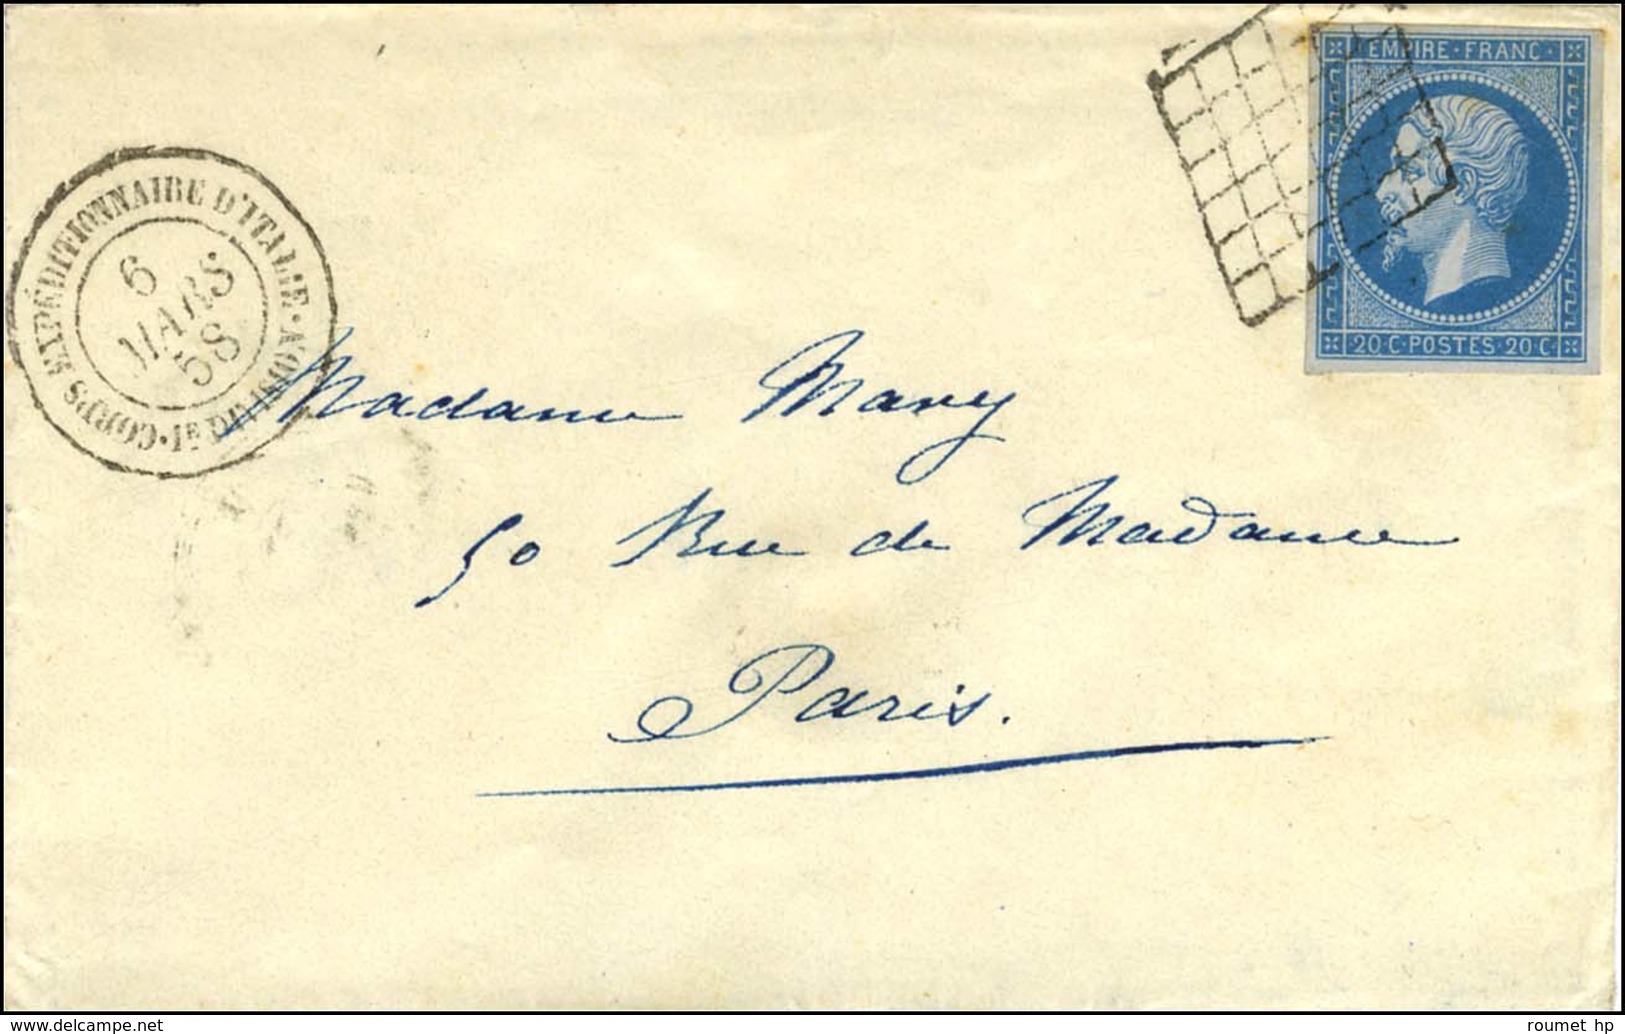 EMPIRE · FRANC ·
CORPS EXPÉDITIONNAIRE D'ITALIE · 1E DIVISION ·
6
MARS
58
20 · C · POSTES · 20 · C ·
Madame Mary
50 Rue de Madame
Paris.
www.delcampe.net
roumet_hp